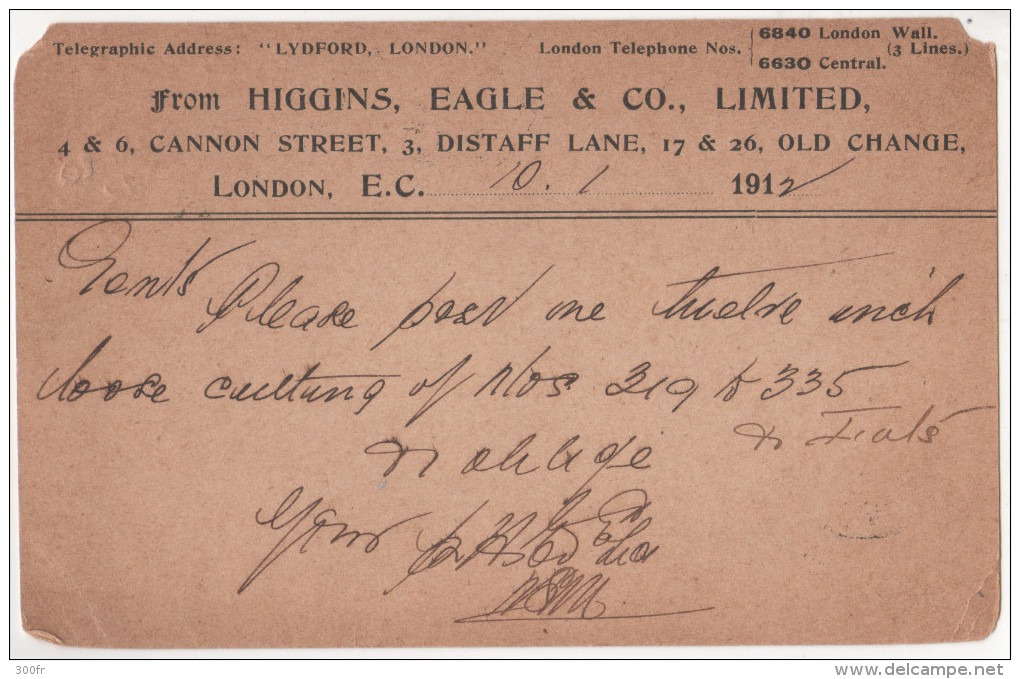 Telegraphic Address: "LYDFORD, LONDON." London Telephone Nos. 6840 London Wall. (3 Lines.)
6630 Central.
From HIGGINS, EAGLE & CO., LIMITED,
4 & 6, CANNON STREET, 3, DISTAFF LANE, 17 & 26, OLD CHANGE,
LONDON, E.C. 10. 1 1912
Gents
Please post me twelve inch
loose cutting of Nos 319 to 335
& oblige
Yours
300fr
www.delcampe.net